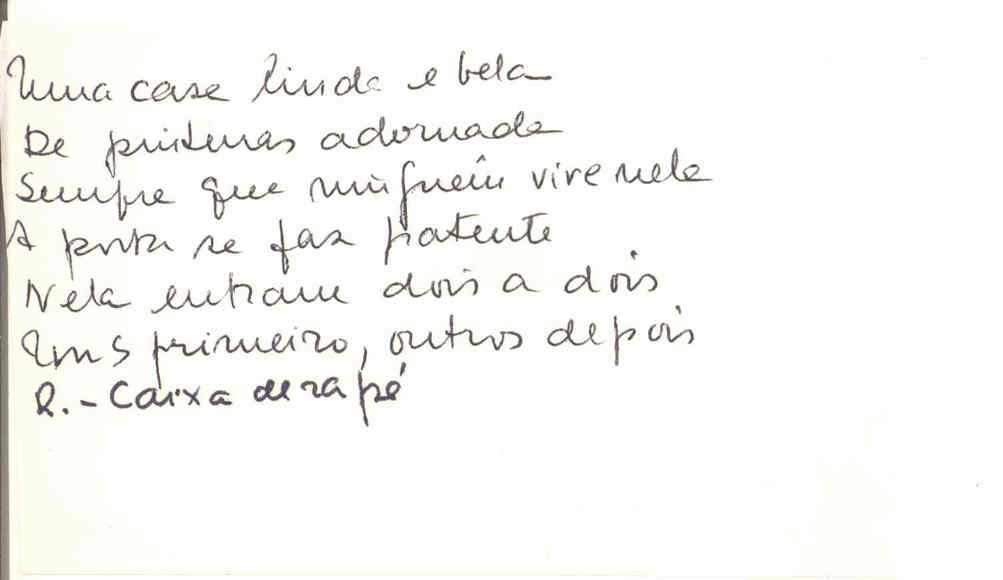 Uma casa linda e bela
De pinturas adornada
Sempre que ninguém vive nela
A porta se faz patente
Nela entram dois a dois
Uns primeiro, outros depois
R. - Caixa de rapé